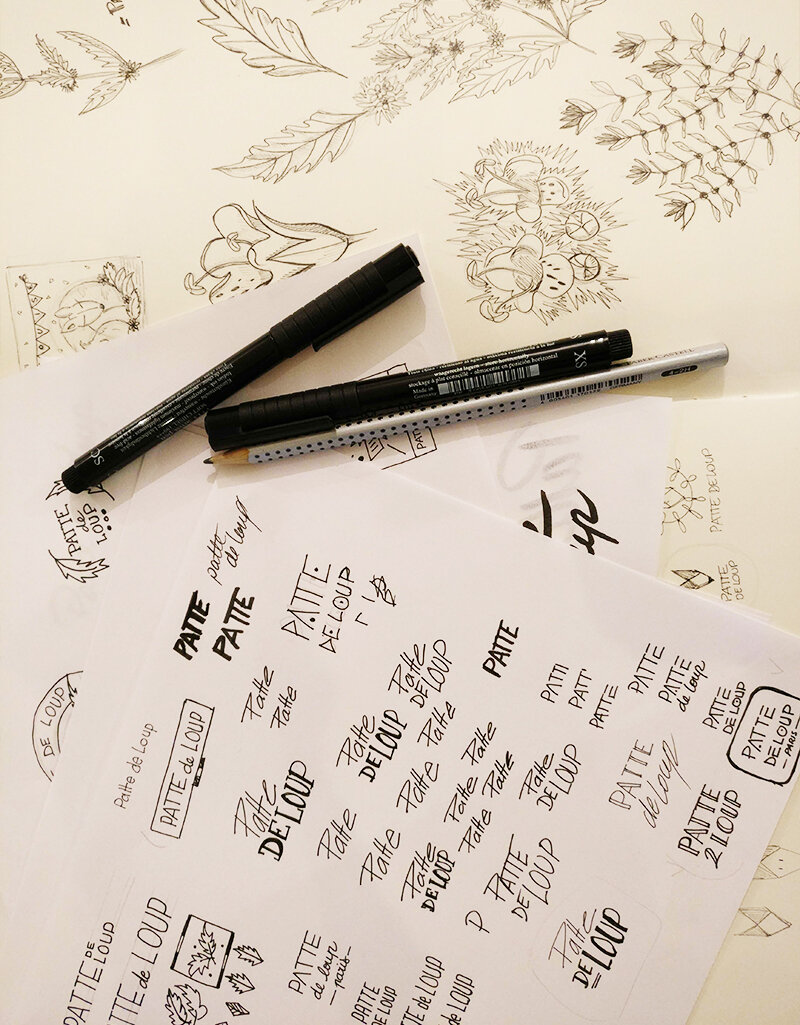 wingerecht lagern - store horizontally
stockage à plat conseillé - almacenar en posición horizontal
Made in
Germany
SX
FABER-CASTELL
PATTE
de
LOUP
DE LOUP
PATTE DE LOUP
PATTE
DE LOUP
patte
de loup
PATTE
PATTE
PATTE
DE LOUP
Patte
Patte
Patte
DE LOUP
PATTE
PATTI
PATT'
PATTE
PATTE
PATTE
de loup
PATTE
DE LOUP
PATTE
DE LOUP
- PARIS -
Patte de Loup
PATTE de LOUP
Patte
DE LOUP
Patte
DE LOUP
Patte
Patte
Patte
Patte
Patte
Patte
Patte
DE LOUP
PATTE
de loup
PATTE
2 LOUP
Patte
Patte
Patte
DE LOUP
P
PATTE
DE LOUP
Patte
DE LOUP
PATTE DE LOUP
PATTE de LOUP
PATTE
de loup
- paris -
PATTE
DE LOUP
PATTE
de LOUP
de LOUP